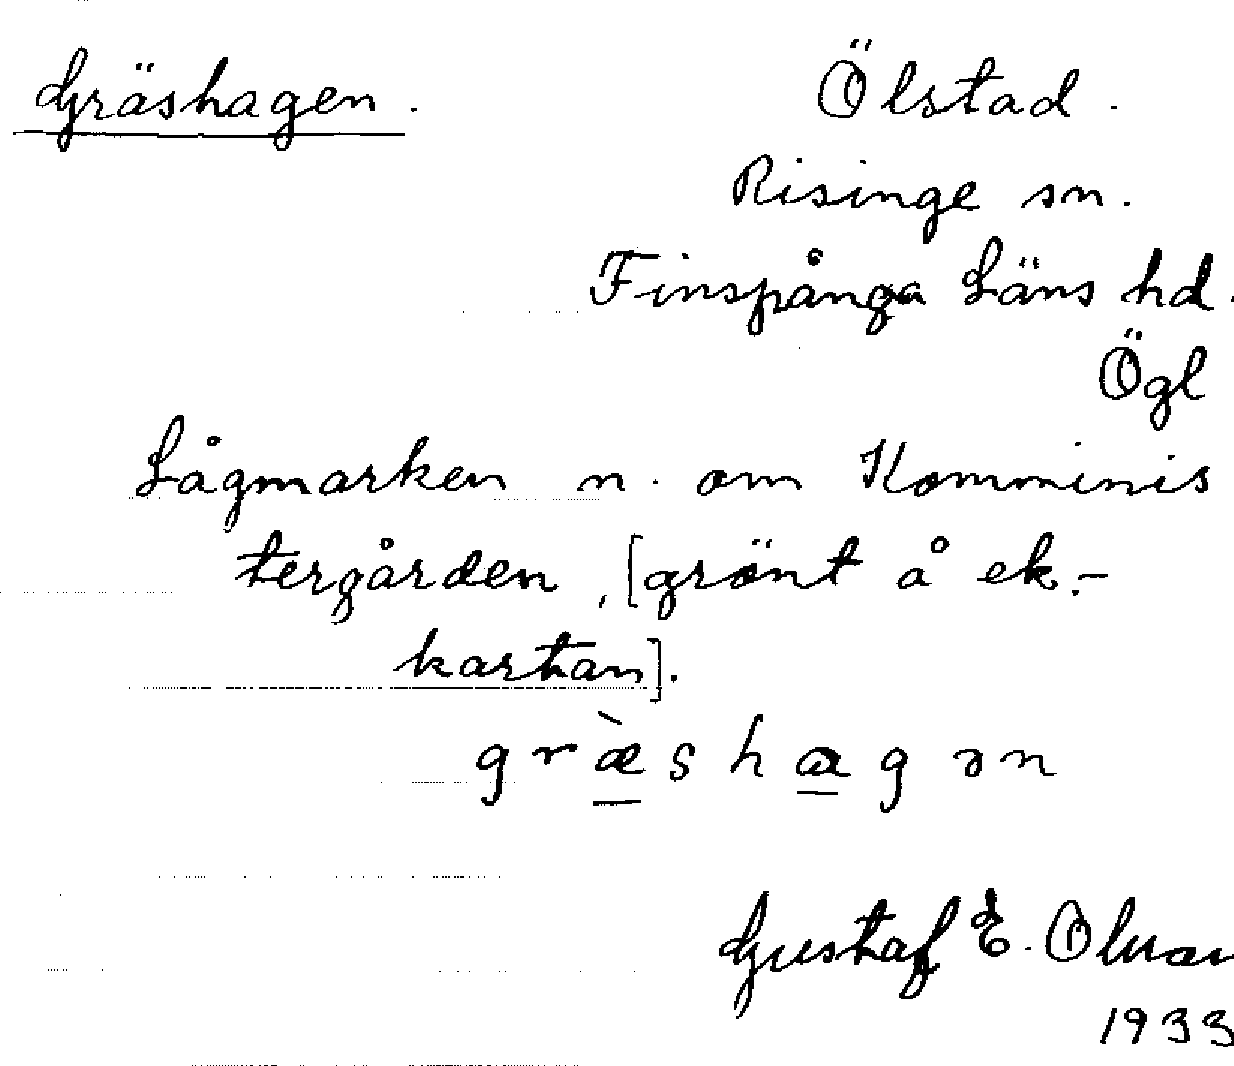 Gräshagen.
Ölstad.
Risinge sn.
Finspånga Läns hd.
Ögl
Lågmarken n. om Komminis
tergården, [grönt å ek.-
kartan].
græ̀shagən
Gustaf E.
1933